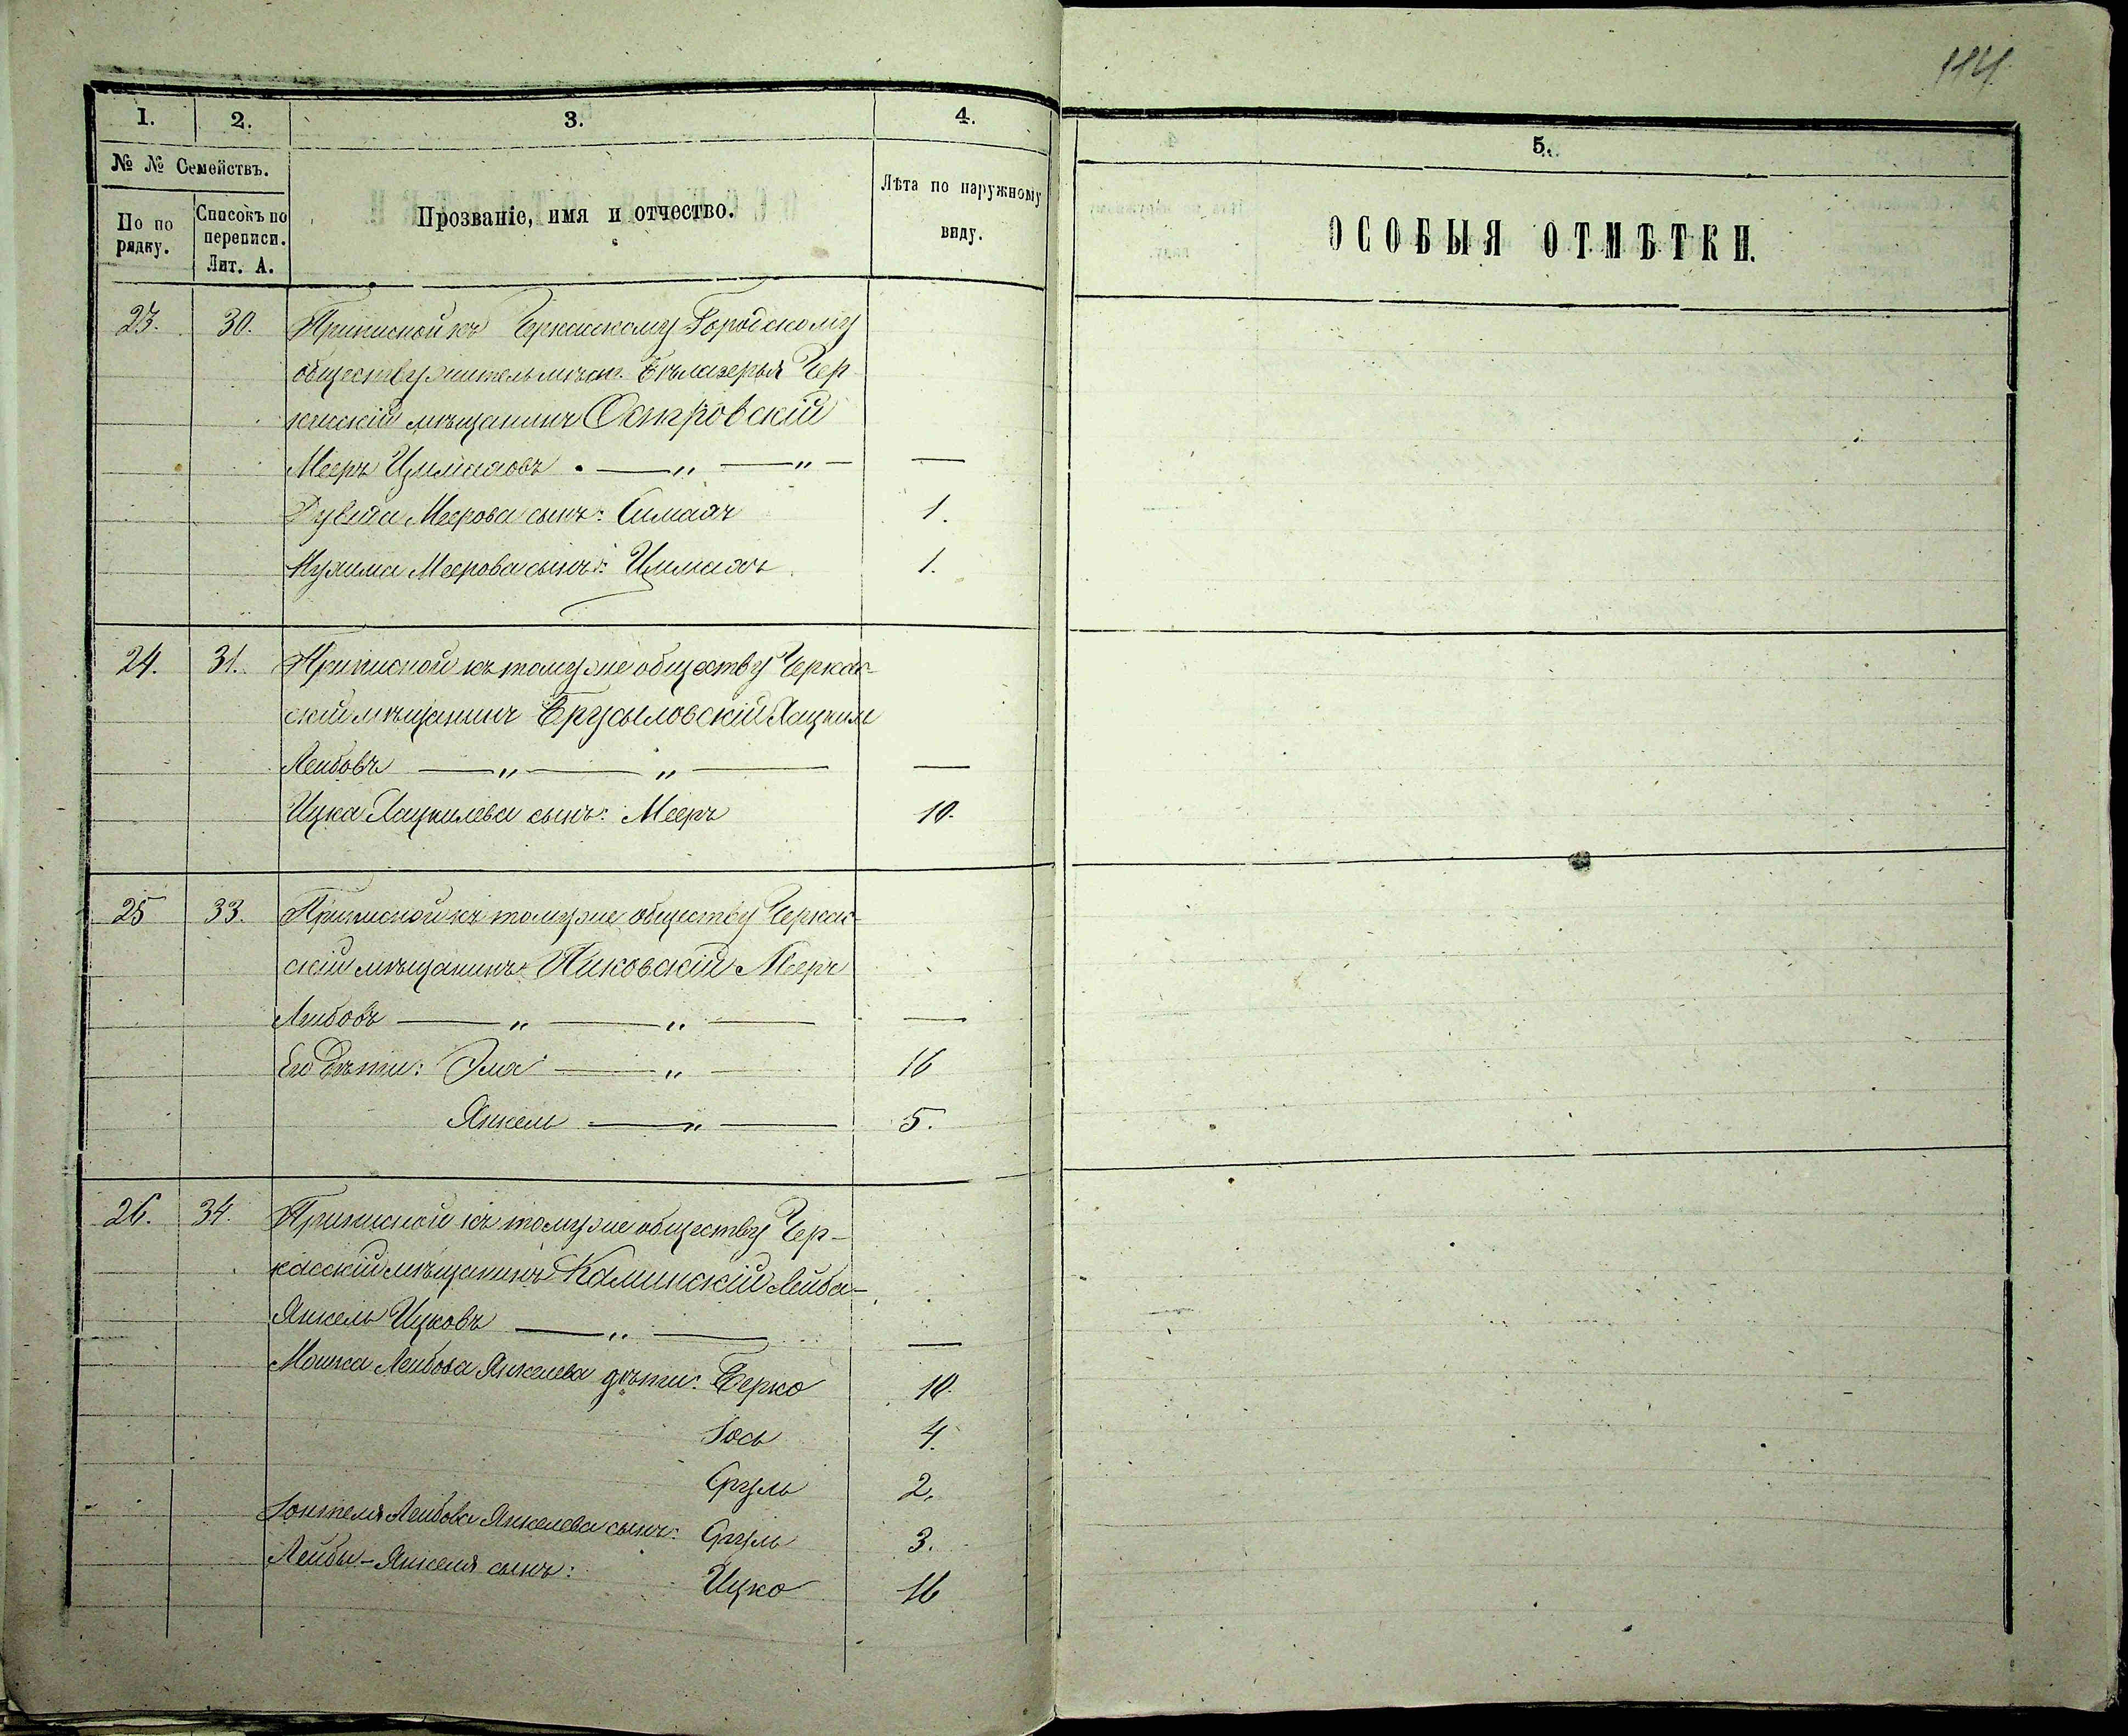 114
1. 2. 3. 4.
№ № Семействъ.
По по рядку.
Списокъ по переписи. Лит. А.
Прозваніе, имя и отчество.
Лѣта по наружному виду.
5.
ОСОБЫЯ ОТМѢТКИ.
23. 30. Приписной къ Черкаскому Городскому
обществу житель мѣст. Бѣлазерья Чер
каскій мѣщанинъ Островскій
Мееръ Цималовъ . — „ — „ — —
Меерова сынъ: Симаяъ 1.
Меерова сынъ: 1.
24. 31. Приписной къ томуже обществу Черкас-
скій мѣщанинъ Брусыловскій Хацкель
Лейбовъ — „ — „ — —
Ицка Хацкилева сынъ: Мееръ 10.
25 33. Приписной къ томуже обществу Черкас-
скій мѣщанинъ Мееръ
Лейбовъ — „ — „ — —
Его дѣти: Эля — „ — 16
Янкель — „ — 5.
26. 34. Приписной къ томуже обществу Чер-
касскій мѣщанинъ Калинскій Лейба-
Янкель Ицковъ — „ — —
Мошка Лейбова Янкелева дѣти: Берко 10.
Іось 4.
Сруль 2.
Іонтеля Лейбова Янкелева сынъ: Сруль 3.
Лейбы-Янкеля сынъ: Ицко 16